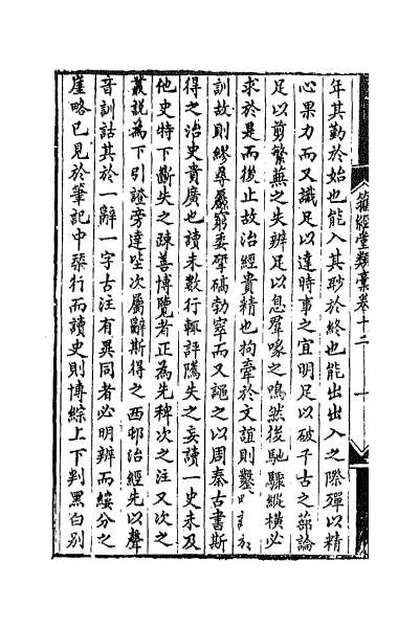 籀經堂類稾卷十二
一
年其勤於始也能入其眇於終也能出出入之際殫以精
心果力而又識足以達時事之宜明足以破千古之蔀論
足以剪繁蕪之失辨足以息羣喙之鳴然後馳驟縱橫必
求於是而後止故治經貴精也拘牽於文誼則
訓故則繆尋屬窮委硜碻勃窣而又謳之以周秦古書斯
得之治史貴廣也讀未數行輒評隲失之妄讀一史未及
他史特下斷失之疎善博覽者正為先稗次之注又次之
叢説為下引證旁達坒次屬辭斯得之西邨治經先以聲
音訓詁其於一辭一字古注有異同者必明辨而綏分之
崖略已見於筆記中琹行而讀史則博綜上下判黑白別